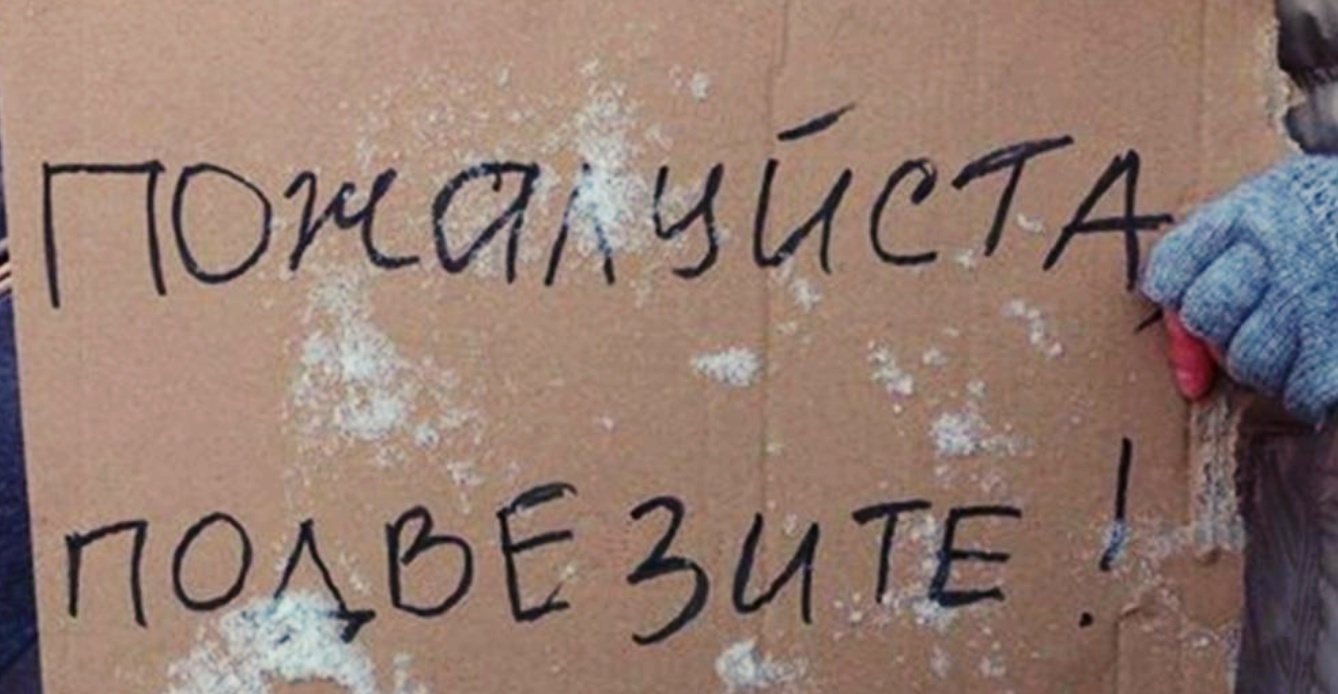 ПОЖАЛУЙСТА
ПОДВЕЗИТЕ!